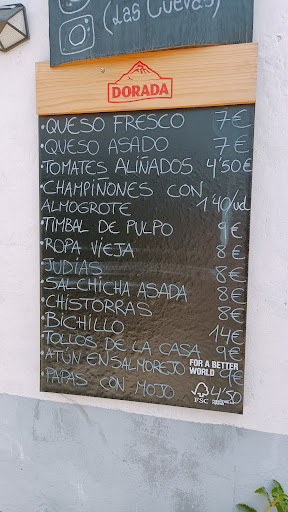 (Las Cuevas)
DORADA
•QUESO FRESCO 7€
•QUESO ASADO 7€
•TOMATES ALIÑADOS 4'50€
•CHAMPIÑONES CON
ALMOGROTE 1'40/ud
•TIMBAL DE PULPO 9€
•ROPA VIEJA 8€
•JUDÍAS 8€
•SALCHICHA ASADA 8€
•CHISTORRAS 8€
•BICHILLO 14€
•TOLLOS DE LA CASA 9€
•ATÚN EN SALMOREJO 9€
FOR A BETTER
WORLD
•PAPAS CON MOJO 4'50
FSC